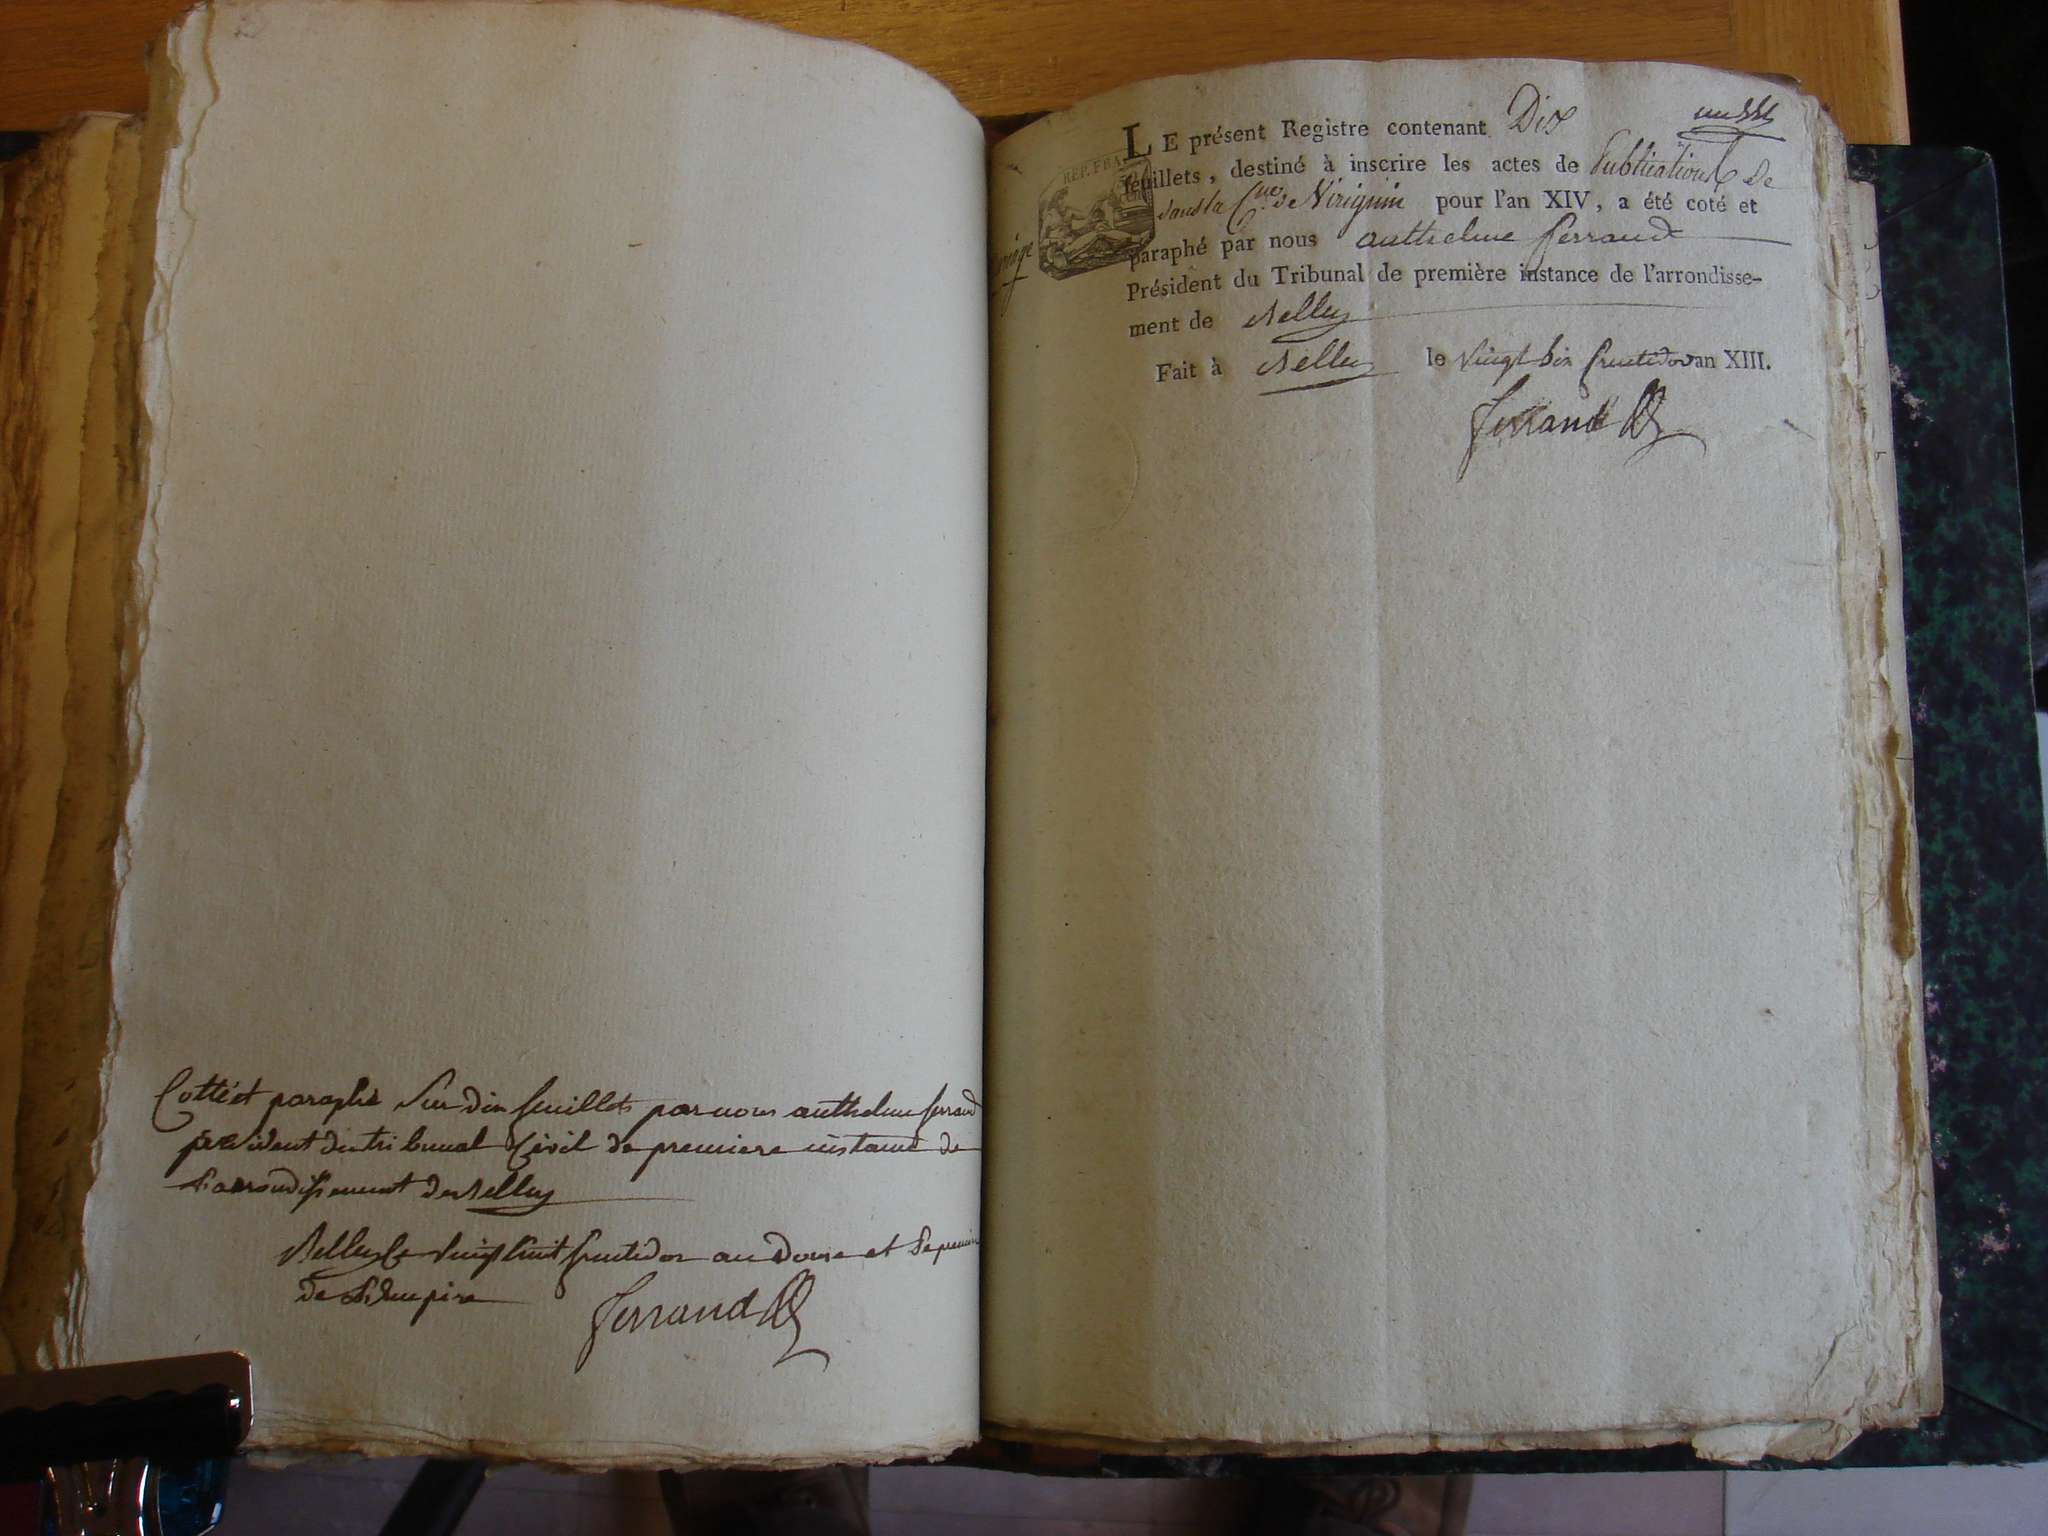 Cotté et paraphé Sur dix feuillets par nous anthelme ferrand
president du tribunal Civil de premiere instance de
L'arrondissement de Belley
Belley le vingt huit fructidor an douze et Le premier
de L'Empire
Ferrand
REP. FRA
LE présent Registre contenant Dix
feuillets, destiné à inscrire les actes de Publications de
mariage dans la Cne de Virignin pour l'an XIV, a été coté et
paraphé par nous anthelme ferrand
Président du Tribunal de première instance de l'arrondisse-
ment de Belley
Fait à Belley le vingt six fructidor an XIII.
Ferrand